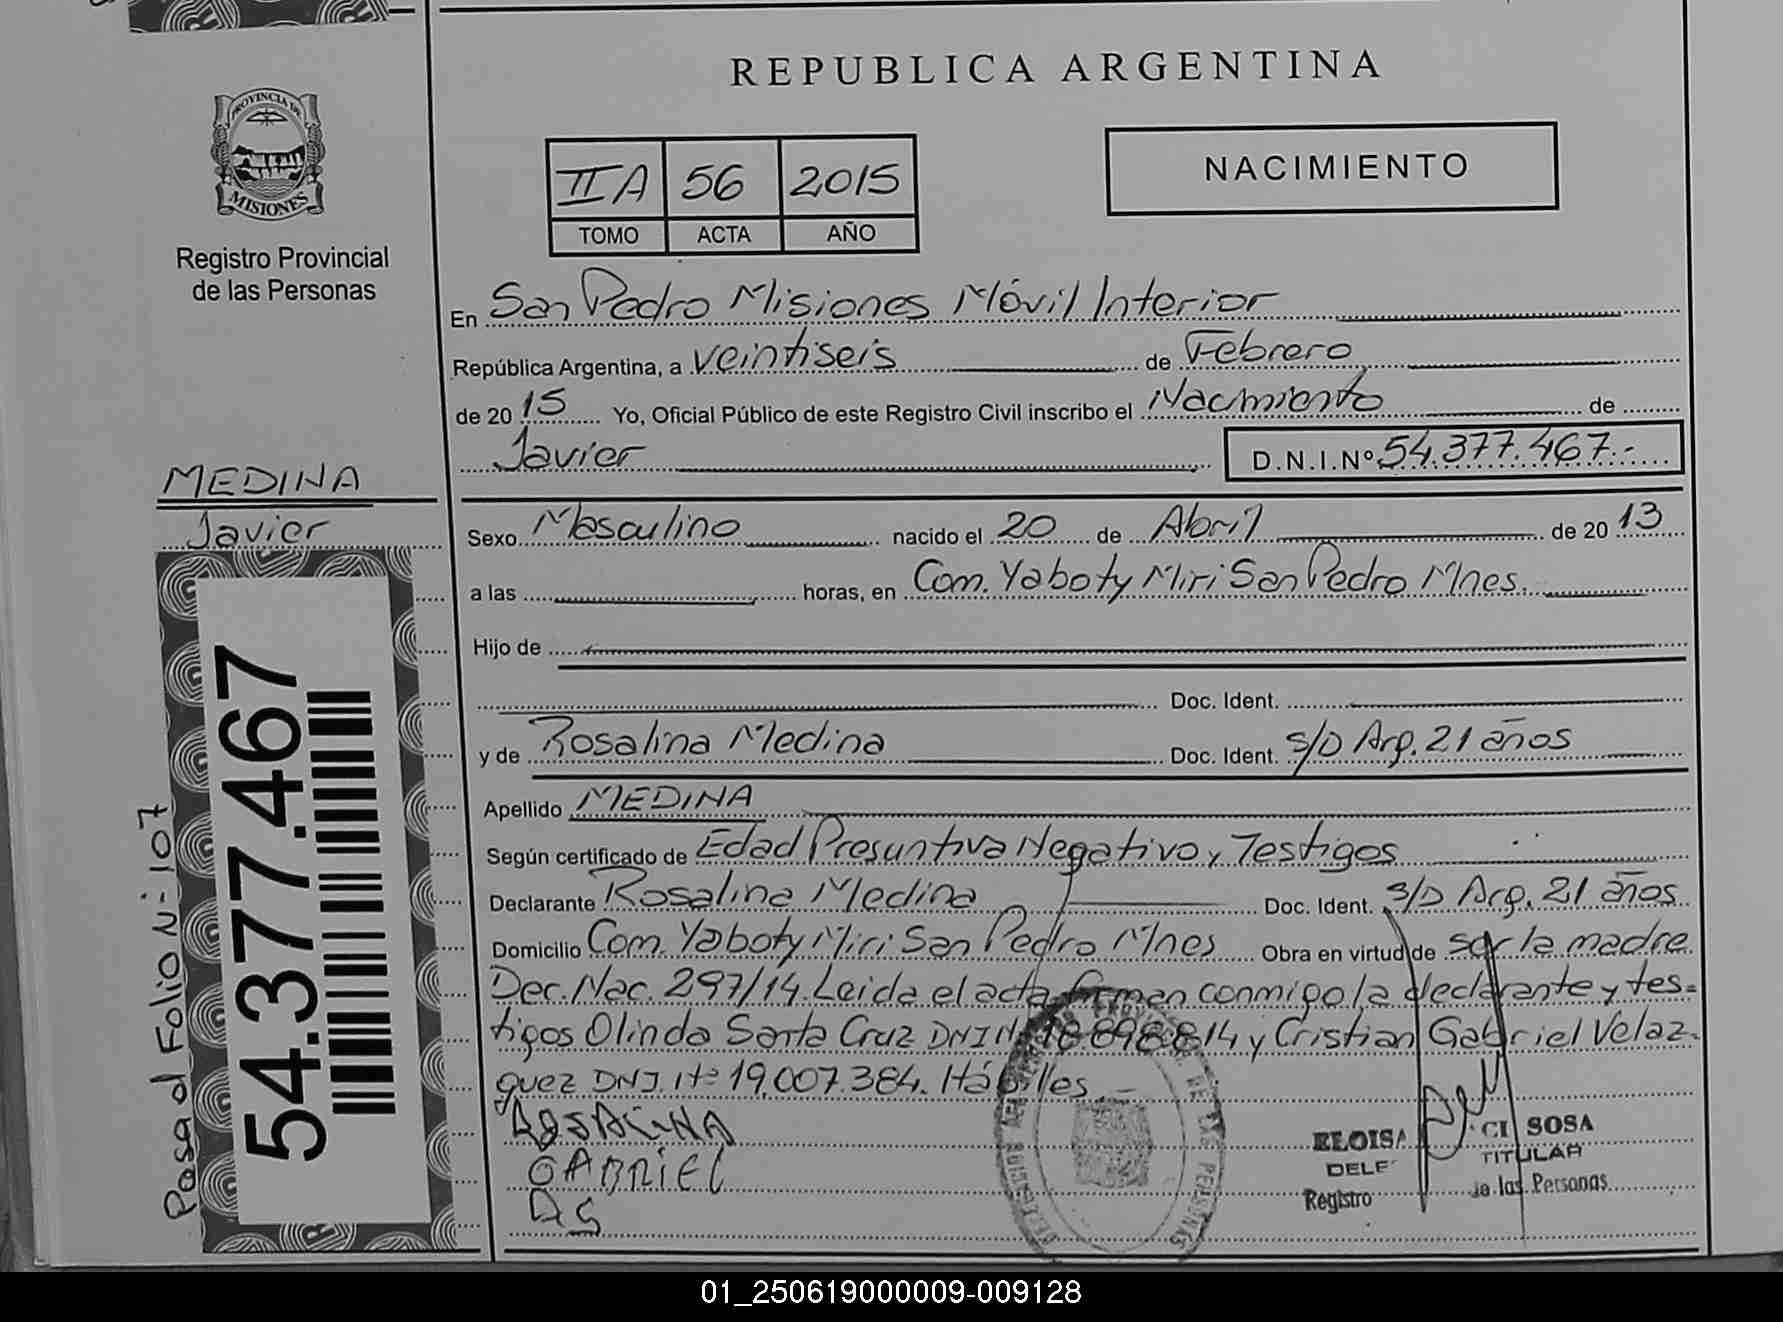 REPUBLICA ARGENTINA
PROVINCIA DE
MISIONES
Registro Provincial
de las Personas
IIA 56 2015
TOMO ACTA AÑO
NACIMIENTO
En San Pedro Misiones Móvil Interior
República Argentina, a veintiseis de Febrero
de 20 15 Yo, Oficial Público de este Registro Civil inscribo el Nacimiento de
Javier D.N.I.Nº 54.377.467.-
MEDINA
Javier
54.377.467
Pasa al Folio Nº 107
Sexo Masculino nacido el 20 de Abril de 20 13
a las horas, en Com. Yaboty Miri San Pedro Mnes.
Hijo de
Doc. Ident.
y de Rosalina Medina Doc. Ident. s/D Arg. 21 años
Apellido MEDINA
Según certificado de Edad Presuntiva Negativo y Testigos
Declarante Rosalina Medina Doc. Ident. s/D Arg. 21 años
Domicilio Com. Yaboty Miri San Pedro Mnes Obra en virtud de ser la madre.
Dec. Nac. 297/14. Leida el acta firman conmigo la declarante y tes=
tigos Olinda Santa Cruz DNI Nº 18.898.814 y Cristian Gabriel Velaz-
quez DNI. Nº 19.007.384. Hábiles
GABRIEL
ELOISA SOSA
TITULAR
Registro de las Personas
01_250619000009-009128